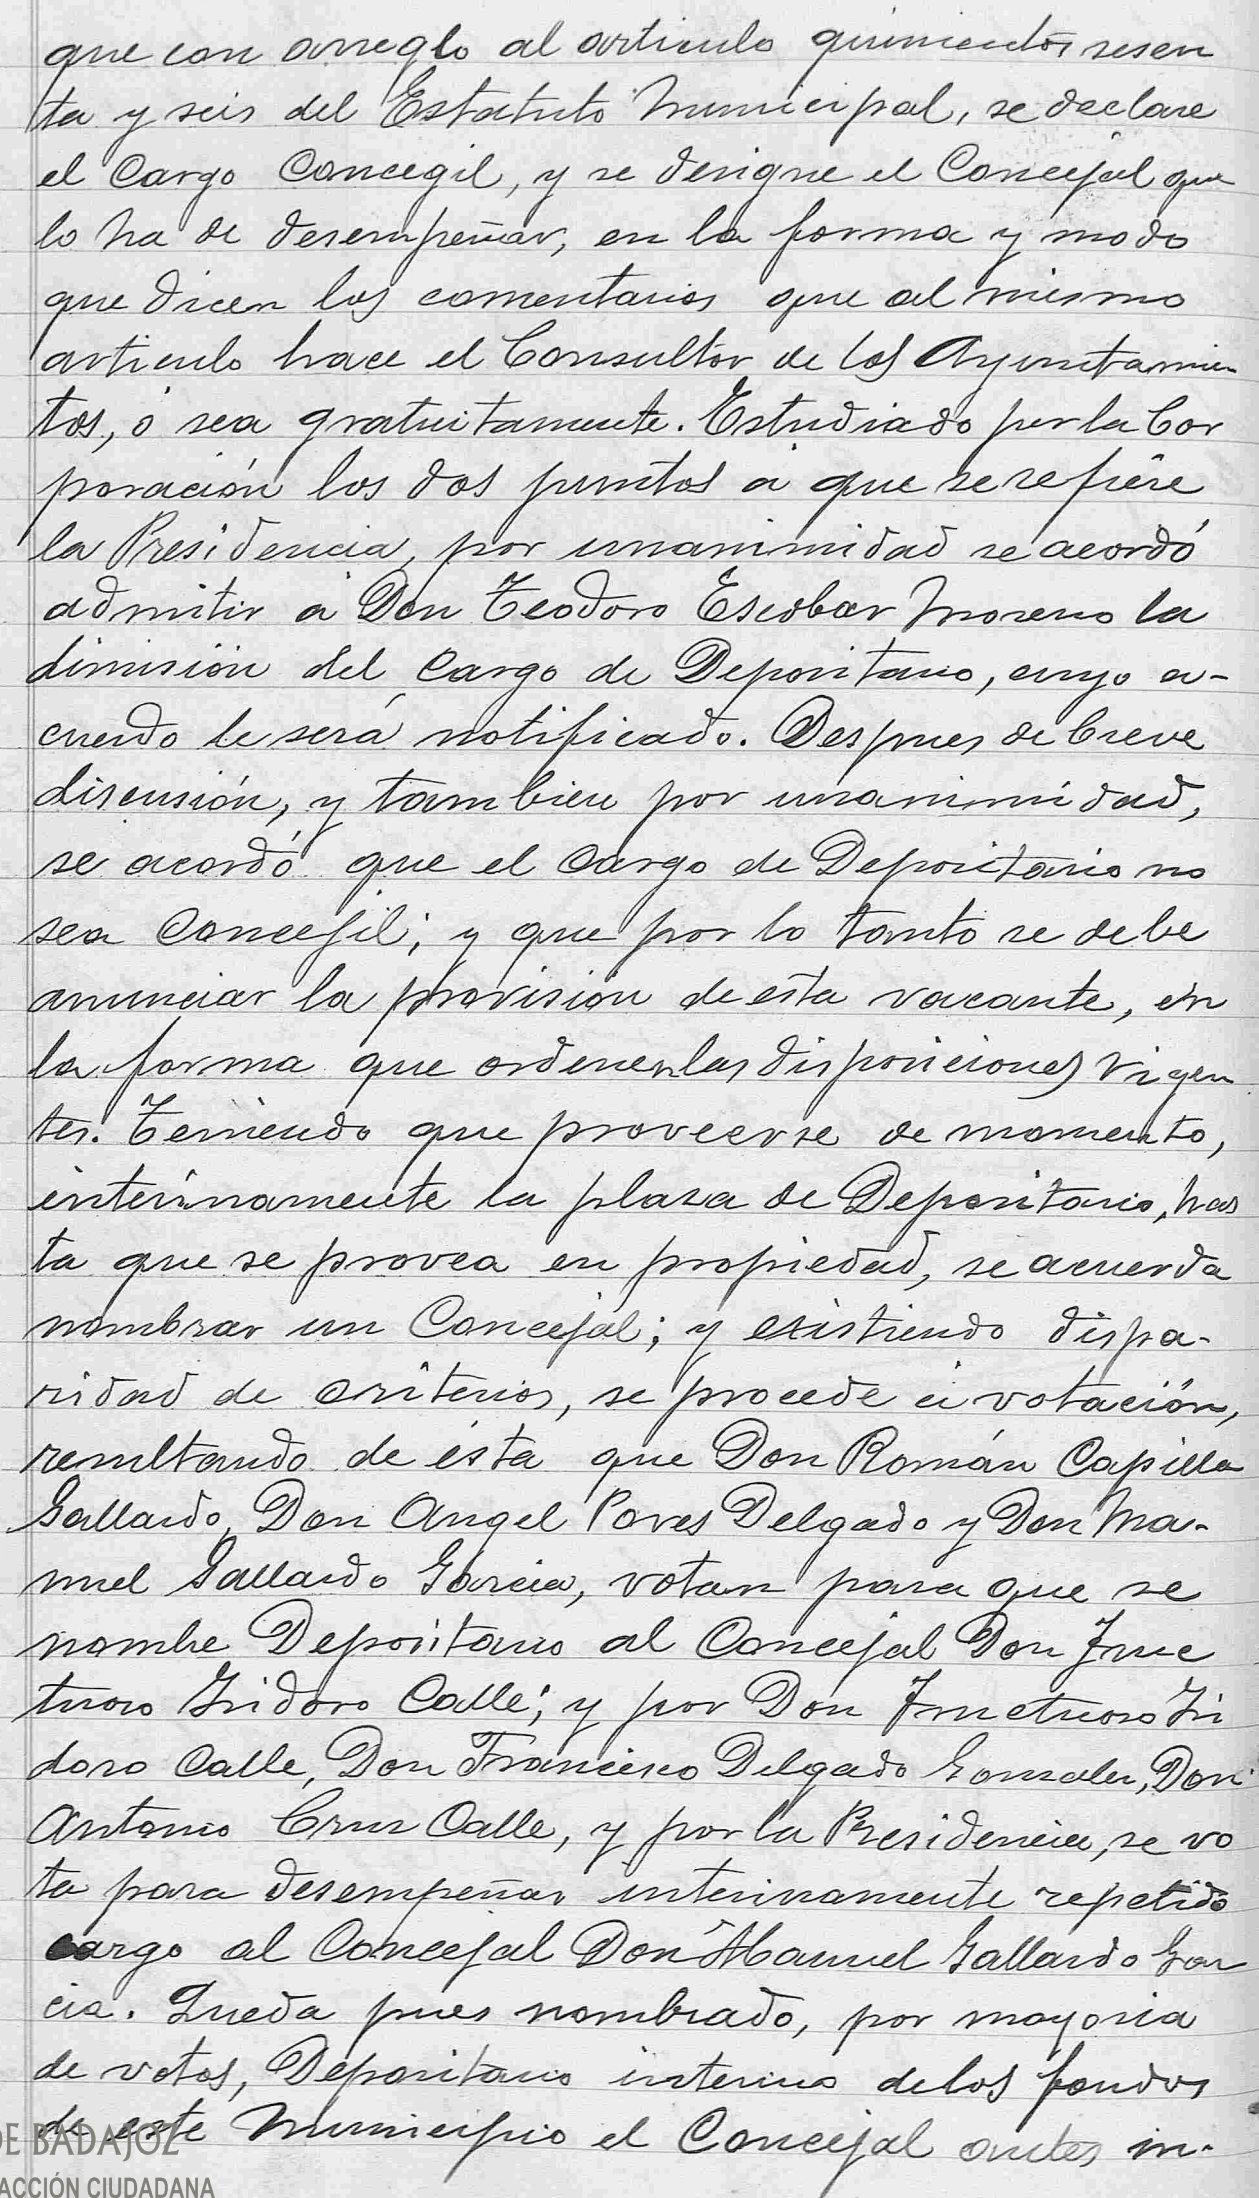 que con arreglo al articulo quinientos sesen
ta y seis del Estatuto Municipal, se declare
el Cargo Concegil, y se designe el Concejal que
lo ha de desempeñar, en la forma y modo
que dicen los comentarios que al mismo
articulo hace el Consultor de los Ayuntamien
tos, ó sea gratuitamente. Estudiado por la Cor
poración los dos puntos á que se refiere
la Presidencia, por unanimidad se acordó
admitir á Don Teodoro Escobar Moreno la
dimisión del Cargo de Depositario, cuyo a-
cuerdo le será notificado. Despues de breve
discusión, y tambien por unanimidad,
se acordó que el Cargo de Depositario no
sea Concejil; y que por lo tanto se debe
anunciar la provisión de esta vacante, en
la forma que ordenen las disposiciones vigen
tes. Teniendo que proveerse de momento,
interinamente la plaza de Depositario, has
ta que se provea en propiedad, se acuerda
nombrar un Concejal; y existiendo dispa-
ridad de criterios, se procede á votación,
resultando de ésta que Don Román Capilla
Gallardo, Don Angel Poves Delgado y Don Ma-
nuel Gallardo Garcia, votan para que se
nombre Depositario al Concejal Don Fruc
tuoso Isidoro Calle; y por Don Fructuoso Isi
doro Calle, Don Francisco Delgado Gonzalez, Don
Antonio Cruz Calle, y por la Presidencia, se vo
ta para desempeñar interinamente repetido
cargo al Concejal Don Manuel Gallardo Gar
cia. Queda pues nombrado, por mayoria
de votos, Depositario interino de los fondos
de este Municipio el Concejal antes in-
DE BADAJOZ
ACCIÓN CIUDADANA